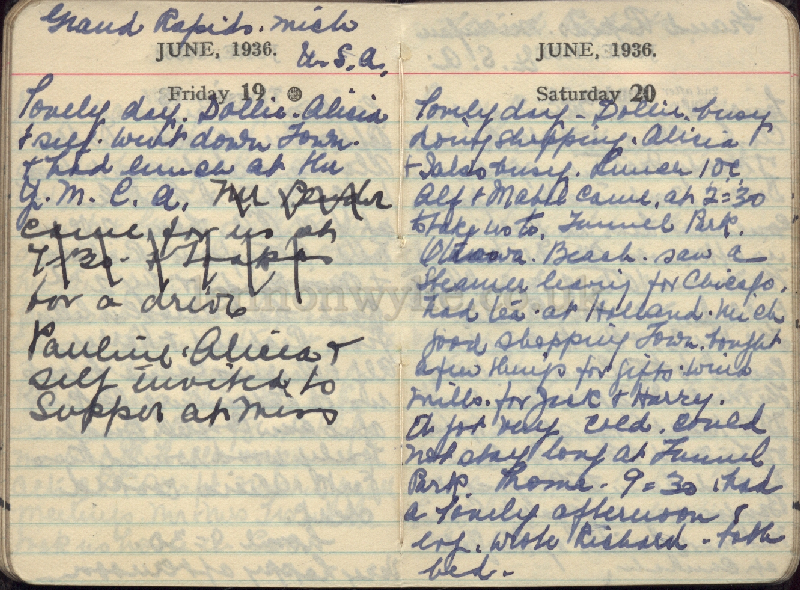 Grand Rapids. Mich
U.S.A.
JUNE, 1936.
Friday 19
Lovely day. Dollie. Alicia
+ self. went down Town.
+ had lunch at the
Y.M.C.A. The
came for us at
7-30.
for a drive
Pauline. Alicia +
self invited to
Supper at Miss
JUNE, 1936.
Saturday 20
Lovely day - Dollie. busy
doing shopping. Alicia
+ busy. Lunch 10c.
Alf + Mabel came. at 2=30
to take us to. Tunnel Park.
Ottawa. Beach. saw a
Steamer leaving for Chicago.
had tea. at Holland. Mich
good shopping Town. bought
a few things for gifts. wind
mills. for Jack + Harry.
It got very cold. could
not stay long at Tunnel
Park. home. 9=30. had
a lovely afternoon &
evg. wrote Richard. -
bed. -
lemonwyre.co.uk